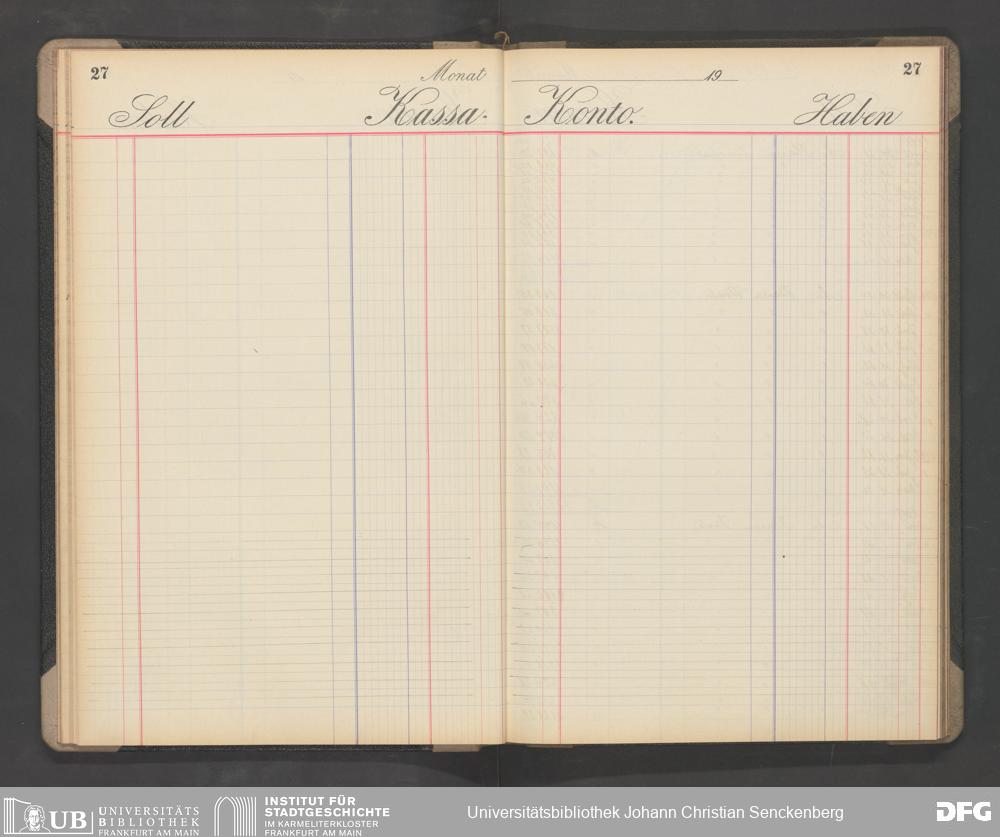 27
Monat
Soll
Kassa-
19
27
Konto.
Haben
UB UNIVERSITÄTS
BIBLIOTHEK
FRANKFURT AM MAIN
INSTITUT FÜR
STADTGESCHICHTE
IM KARMELITERKLOSTER
FRANKFURT AM MAIN
Universitätsbibliothek Johann Christian Senckenberg
DFG